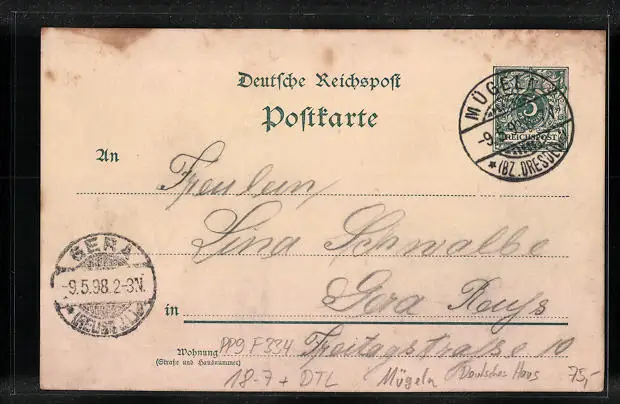 Deutsche Reichspost
Postkarte
MÜGELN
-9.5.98
* (BZ. DRESDEN)
5
REICHSPOST
An
Freulein
Lina Schwalbe
GERA
-9.5.98.2-3N.
(REUSS)
in Gera Reuß
Wohnung
(Straße und Hausnummer)
Freitagstraße 10
PP9 F334
18-7 + DTL
Mügeln Deutsches Haus
75,-